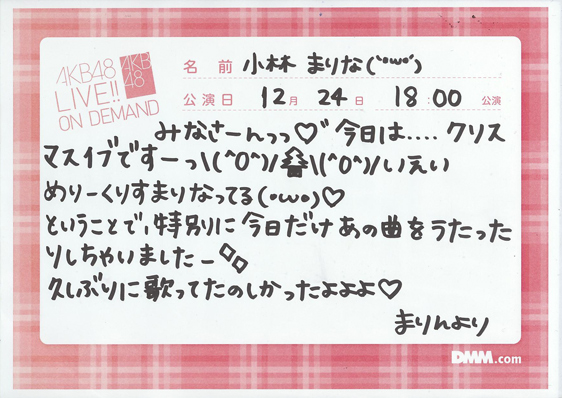 AKB48
LIVE!!
ON DEMAND
AKB
48
名前 小林 まりな(`・ω・´)
公演日 12月 24日 18:00 公演
みなさーんっっ♡゛今日は....クリス
マスイブですーっ\(^0^)/🎄\(^0^)/いえい
めりーくりすまりなってる(・ω・)♡
ということで、特別に今日だけあの曲をうたった
りしちゃいましたー◇◇
久しぶりに歌ってたのしかったよよよ♡
まりんより
DMM.com